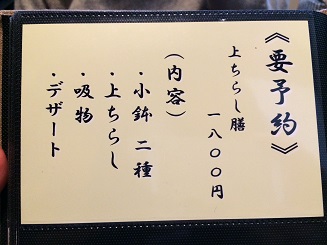 《要予約》
上ちらし膳
一八〇〇円
(内容)
・小鉢 二種
・上ちらし
・吸物
・デザート